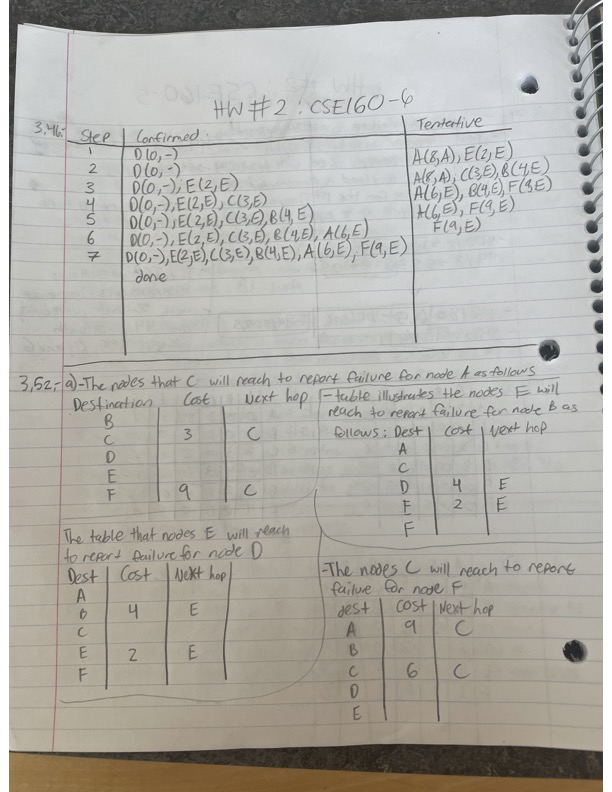 HW #2: CSE160-6
3.46- Step Confirmed: Tentative
1 D(0,-) A(8,A), E(2,E)
2 D(0,-) A(8,A), C(3,E), B(4,E)
3 D(0,-), E(2,E) A(6,E), B(4,E), F(9,E)
4 D(0,-), E(2,E), C(3,E) A(6,E), F(9,E)
5 D(0,-), E(2,E), C(3,E), B(4,E) F(9,E)
6 D(0,-), E(2,E), C(3,E), B(4,E), A(6,E)
7 D(0,-), E(2,E), C(3,E), B(4,E), A(6,E), F(9,E)
done
3,52,- a)-The nodes that C will reach to report failure for node A as follows
Destination Cost Next hop
B
C 3 C
D
E
F 9 C
-table illustrates the nodes E will
reach to report failure for node B as
follows: Dest Cost Next hop
A
C
D 4 E
E 2 E
F
The table that nodes E will reach
to report failure for node D
Dest Cost Next hop
A
B 4 E
C
E 2 E
F
-The nodes C will reach to report
failure for node F
dest Cost Next hop
A 9 C
B
C 6 C
D
E